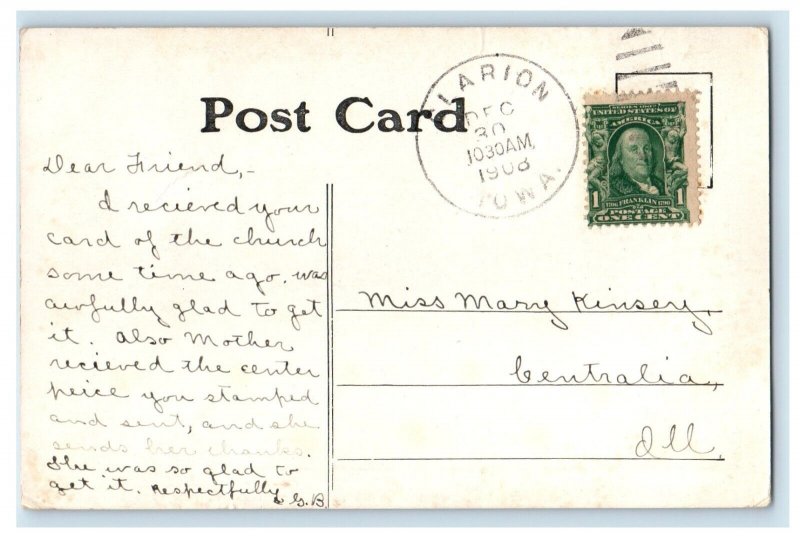 Post Card
LARION
DEC
30
1030AM.
1908
IOWA.
SERIES 1902
UNITED STATES OF
AMERICA
1 1706 FRANKLIN 1790 1
POSTAGE
ONE CENT
Dear Friend,-
I recieved your
card of the church
some time ago. was
awfully glad to get
it. Also Mother
recieved the center
peice you stamped
and sent, and she
sends her thanks.
She was so glad to
get it. Respectfully
G.B.
Miss Mary Kinsey,
Centralia,
Ill.